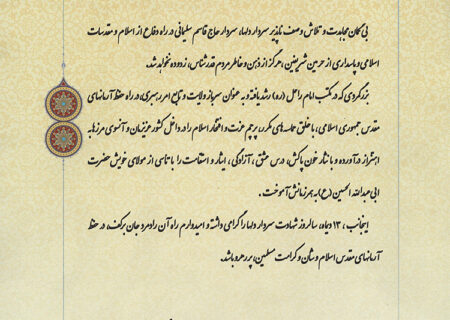 بی گمان مجاهدت و تلاش وصف ناپذیر سردار دلها، سردار حاج قاسم سلیمانی در راه دفاع از اسلام و مقدسات
اسلامی و پاسداری از حرمین شریفین، هرگز از ذهن و خاطر مردم قدرشناس، زدوده نخواهد شد.
بزرگمردی که در مکتب امام راحل (ره) رشد یافته و به عنوان سرباز ولایت و تابع امر رهبری، در راه حفظ آرمانهای
مقدس جمهوری اسلامی، با خلق حماسه های مکرر، پرچم عزت و افتخار اسلام را در داخل کشور عزیزمان و آنسوی مرزها به
اهتزاز درآورده و با نثار خون پاکش، درس عشق، آزادگی، ایثار و استقامت را با تاسی از مولای خویش حضرت
ابی عبدالله الحسین (ع) به همرزمانش آموخت.
اینجانب، ۱۳ دیماه، سالروز شهادت سردار دلها را گرامی داشته و امیدوارم راه آن رادمرد جان برکف، در حفظ
آرمانهای مقدس اسلام و شان و کرامت مسلمین، پر رهرو باشد.